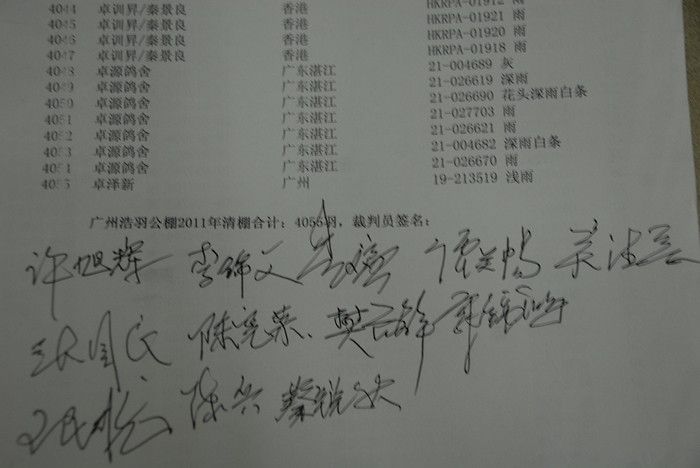 4044 卓训昇/秦景良 香港 HKRPA-01912 雨
4045 卓训昇/秦景良 香港 HKRPA-01921 雨
4046 卓训昇/秦景良 香港 HKRPA-01920 雨
4047 卓训昇/秦景良 香港 HKRPA-01918 雨
4048 卓源鸽舍 广东湛江 21-004689 灰
4049 卓源鸽舍 广东湛江 21-026619 深雨
4050 卓源鸽舍 广东湛江 21-026690 花头深雨白条
4051 卓源鸽舍 广东湛江 21-027703 雨
4052 卓源鸽舍 广东湛江 21-026621 雨
4053 卓源鸽舍 广东湛江 21-004682 深雨白条
4054 卓源鸽舍 广东湛江 21-026670 雨
4055 卓泽新 广州 19-213519 浅雨
广州浩羽公棚2011年清棚合计：4055羽，裁判员签名：
许旭辉 李锦文
陈亮荣
陈兴 蔡锐